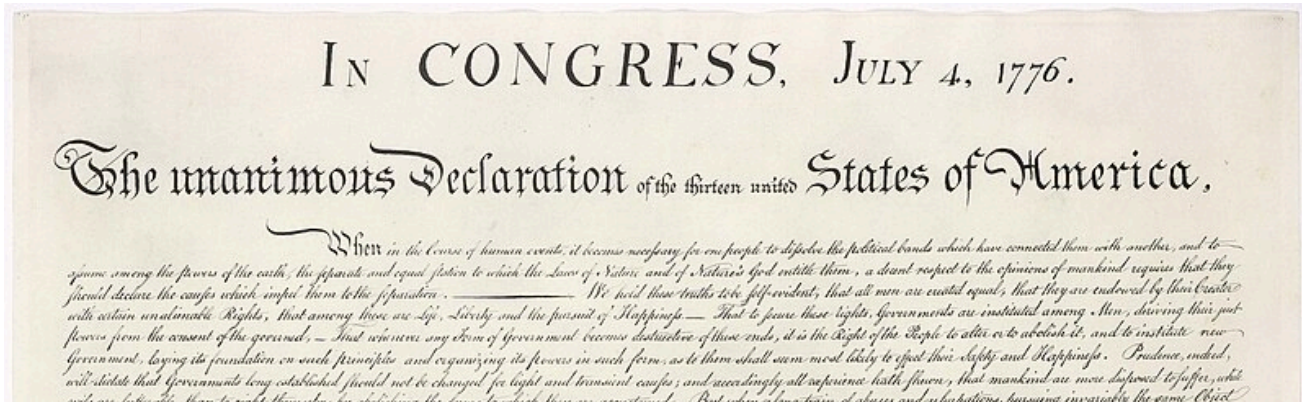 In CONGRESS, July 4, 1776.
The unanimous Declaration of the thirteen united States of America,
When in the Course of human events, it becomes necessary for one people to dissolve the political bands which have connected them with another, and to
assume among the powers of the earth, the separate and equal station to which the Laws of Nature and of Nature's God entitle them, a decent respect to the opinions of mankind requires that they
should declare the causes which impel them to the separation. ——— We hold these truths to be self-evident, that all men are created equal, that they are endowed by their Creator
with certain unalienable Rights, that among these are Life, Liberty and the pursuit of Happiness.— That to secure these rights, Governments are instituted among Men, deriving their just
powers from the consent of the governed, — That whenever any Form of Government becomes destructive of these ends, it is the Right of the People to alter or to abolish it, and to institute new
Government, laying its foundation on such principles and organizing its powers in such form, as to them shall seem most likely to effect their Safety and Happiness. Prudence, indeed,
will dictate that Governments long established should not be changed for light and transient causes; and accordingly all experience hath shewn, that mankind are more disposed to suffer, while